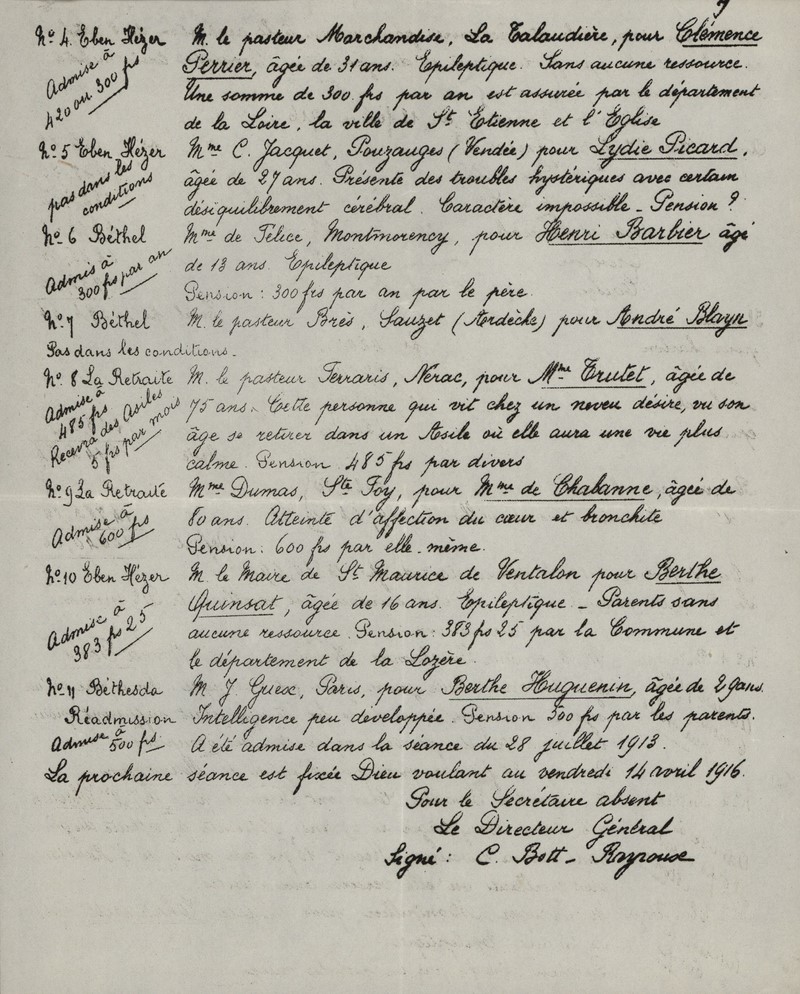 9
No. 4. Eben Hézer M. le pasteur Marchandise, La Talaudière, pour Clémence
Admise à
420 ou 300 frs
Perrier, âgée de 31 ans. Epileptique. Sans aucune ressource.
Une somme de 300 frs par an est assurée par le département
de la Loire, la ville de St Etienne et l'Eglise
No 5 Eben Hézer Mme C. Jacquet, Pouzauges (Vendée) pour Lydie Picard,
pas dans les
conditions
âgée de 27 ans. Présente des troubles hystériques avec certain
désiquilibrement cérébral. Caractère impossible - Pension ?
No 6 Béthel Mme de Félice, Montmorency, pour Henri Barbier âgé
Admis à
300 frs par an
de 13 ans. Epileptique
Pension : 300 frs par an par le père.
No 7 Béthel M. le pasteur Brès, Sauzet (Ardèche) pour André Blayn
Pas dans les conditions.
No. 8 La Retraite M. le pasteur Ferraris, Nérac, pour Mme Trutet, âgée de
Admise à
485 frs
Recevra des Asiles
5 frs par mois
75 ans. Cette personne qui vit chez un neveu désire, vu son
âge se retirer dans un Asile où elle aura une vie plus
calme. Pension. 485 frs par divers
No 9 La Retraite Mme Dumas, Ste Foy, pour Mme de Chabanne, âgée de
Admise à
600 frs
80 ans. Atteinte d'affection du cœur et bronchite
Pension: 600 frs par elle-même.
No 10 Eben Hézer M. le Maire de St Maurice de Ventalon pour Berthe
Admise à
383 frs 25
Quinsat, âgée de 16 ans. Epileptique - Parents sans
aucune ressource. Pension: 383 frs 25 par la Commune et
le département de la Lozère.
No 11 Béthesda M J. Guex, Paris, pour Berthe Huguenin, âgée de 29 ans.
Réadmission Intelligence peu développée. Pension 500 frs par les parents.
Admise à
500 frs. A été admise dans la séance du 28 juillet 1913.
La prochaine séance est fixée Dieu voulant au vendredi 14 avril 1916.
Pour le Secrétaire absent
Le Directeur Général
Signé : C. Bott - Rayroux